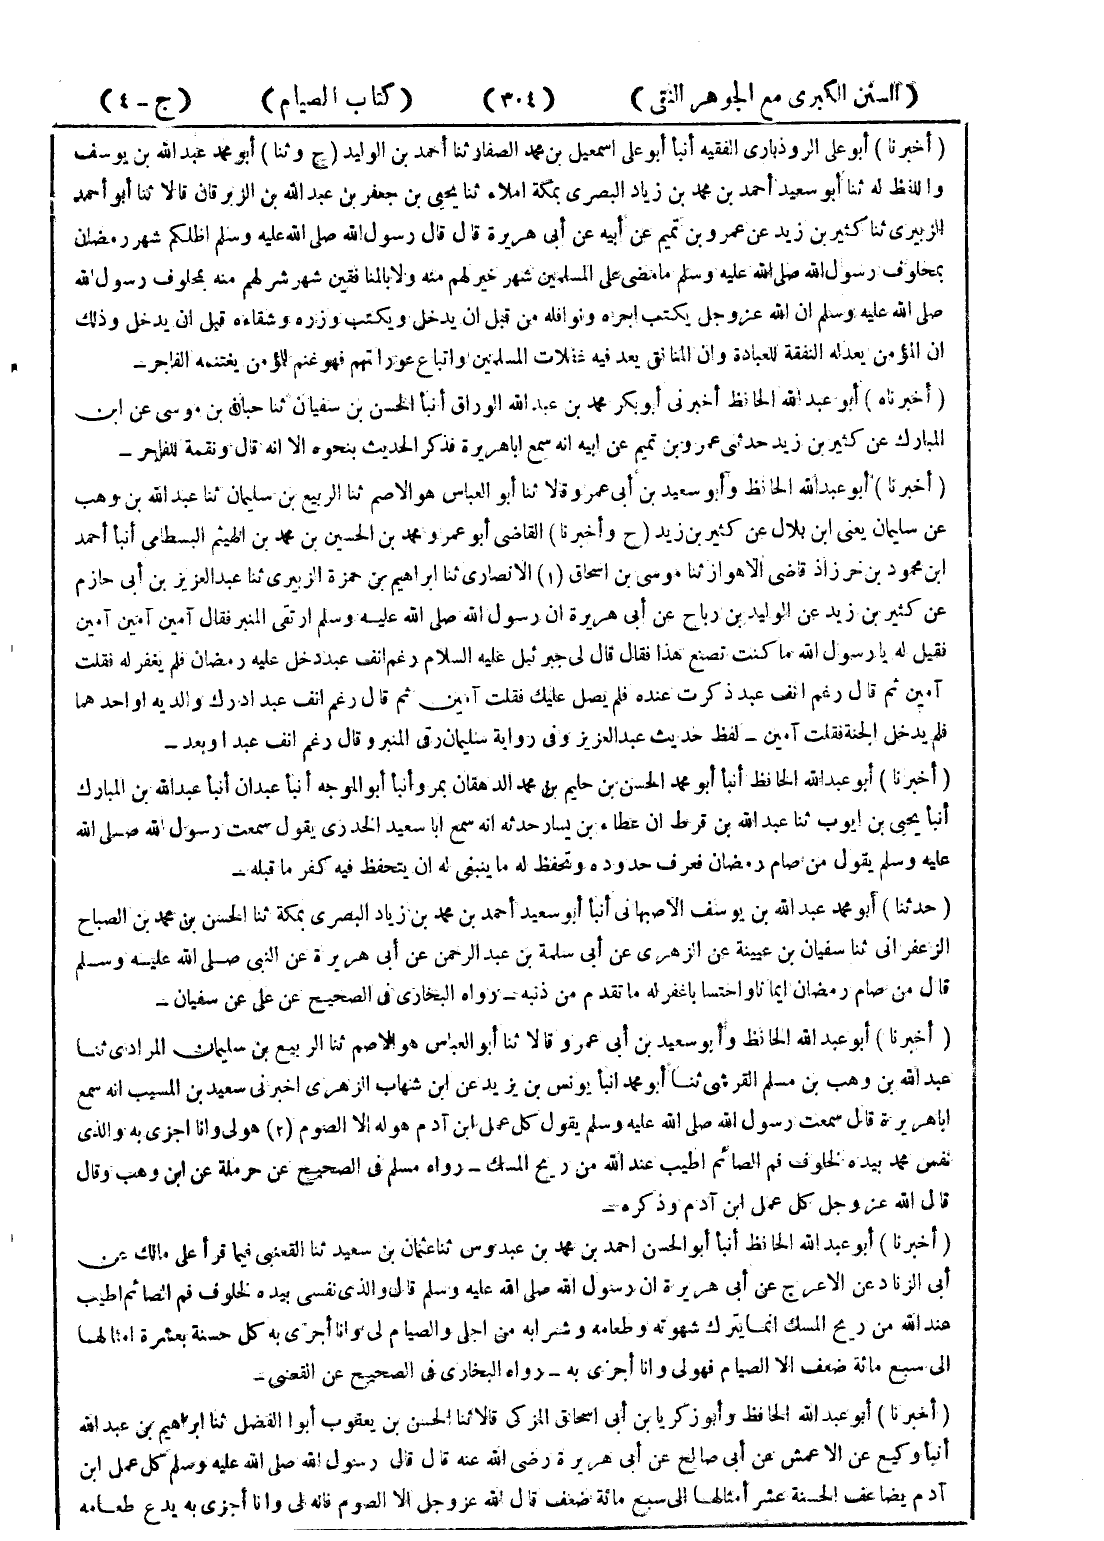 ( السنن الكبرى مع الجوهر النقى ) ( ٣٠٤ ) ( كتاب الصيام ) ( ج - ٤ )
( أخبرنا ) أبو على الروذبارى الفقيه أنبأ أبو على اسمعيل بن محمد الصفار ثنا أحمد بن الوليد ( ح وثنا ) أبو محمد عبد الله بن يوسف
واللفظ له ثنا أبو سعيد أحمد بن محمد بن زياد البصرى بمكة املاء ثنا يحيى بن جعفر بن عبد الله بن الزبرقان قالا ثنا أبو أحمد
الزبيرى ثنا كثير بن زيد عن عمرو بن تميم عن أبيه عن أبى هريرة قال قال رسول الله صلى الله عليه وسلم اظلكم شهر رمضان
بمحلوف رسول الله صلى الله عليه وسلم ما مضى على المسلمين شهر خير لهم منه ولا بالمنافقين شهر شر لهم منه بمحلوف رسول الله
صلى الله عليه وسلم ان الله عز وجل يكتب اجره ونوافله من قبل ان يدخل ويكتب وزره وشقاءه قبل ان يدخل وذلك
ان المؤمن يعد له النفقة للعبادة وان المنافق يعد فيه غفلات المسلمين واتباع عوراتهم فهو غنم للمؤمن يغتنمه الفاجر ـ
( أخبرناه ) أبو عبد الله الحافظ أخبرنى أبو بكر محمد بن عبد الله الوراق أنبأ الحسن بن سفيان ثنا حبان بن موسى عن ابن
المبارك عن كثير بن زيد حدثنى عمرو بن تميم عن ابيه انه سمع اباهريرة فذكر الحديث بنحوه الا انه قال ونقمة للفاجر ـ
( أخبرنا ) أبو عبد الله الحافظ وأبو سعيد بن أبى عمرو قالا ثنا أبو العباس هو الاصم ثنا الربيع بن سليمان ثنا عبد الله بن وهب
عن سليمان يعنى ابن بلال عن كثير بن زيد ( ح وأخبرنا ) القاضى أبو عمرو محمد بن الحسين بن محمد بن الهيثم البسطامى أنبأ أحمد
ابن محمود بن خرزاذ قاضى الاهواز ثنا موسى بن اسحاق (١) الانصارى ثنا ابراهيم بن حمزة الزبيرى ثنا عبد العزيز بن أبى حازم
عن كثير بن زيد عن الوليد بن رباح عن أبى هريرة ان رسول الله صلى الله عليه وسلم ارتقى المنبر فقال آمين آمين آمين
فقيل له يا رسول الله ما كنت تصنع هذا فقال قال لى جبرئيل عليه السلام رغم انف عبد دخل عليه رمضان فلم يغفر له فقلت
آمين ثم قال رغم انف عبد ذكرت عنده فلم يصل عليك فقلت آمين ثم قال رغم انف عبد ادرك والديه او احدهما
فلم يدخل الجنة فقلت آمين ـ لفظ حديث عبد العزيز وفى رواية سليمان رقى المنبر وقال رغم انف عبد او بعد ـ
( أخبرنا ) أبو عبد الله الحافظ أنبأ أبو محمد الحسن بن حليم بن محمد الدهقان بمرو أنبأ أبو الموجه أنبأ عبدان أنبأ عبد الله بن المبارك
أنبأ يحيى بن ايوب ثنا عبد الله بن قرط ان عطاء بن يسار حدثه انه سمع ابا سعيد الخدرى يقول سمعت رسول الله صلى الله
عليه وسلم يقول من صام رمضان فعرف حدوده وتحفظ له ما ينبغى له ان يتحفظ فيه كفر ما قبله ـ
( حدثنا ) أبو محمد عبد الله بن يوسف الاصبهانى أنبأ أبو سعيد أحمد بن محمد بن زياد البصرى بمكة ثنا الحسن بن محمد بن الصباح
الزعفرانى ثنا سفيان بن عيينة عن الزهرى عن أبى سلمة بن عبد الرحمن عن أبى هريرة عن النبى صلى الله عليه وسلم
قال من صام رمضان ايمانا واحتسابا غفر له ما تقدم من ذنبه ـ رواه البخارى فى الصحيح عن على عن سفيان ـ
( أخبرنا ) أبو عبد الله الحافظ وأبو سعيد بن أبى عمرو قالا ثنا أبو العباس هو الاصم ثنا الربيع بن سليمان المرادى ثنا
عبد الله بن وهب بن مسلم القرشى ثنا أبو محمد انبأ يونس بن يزيد عن ابن شهاب الزهرى اخبرنى سعيد بن المسيب انه سمع
اباهريرة قال سمعت رسول الله صلى الله عليه وسلم يقول كل عمل ابن آدم هو له الا الصوم (٢) هو لى وانا اجزى به والذى
نفس محمد بيده لخلوف فم الصائم اطيب عند الله من ريح المسك ـ رواه مسلم فى الصحيح عن حرملة عن ابن وهب وقال
قال الله عز وجل كل عمل ابن آدم وذكره ـ
( أخبرنا ) أبو عبد الله الحافظ أنبأ أبو الحسن احمد بن محمد بن عبدوس ثنا عثمان بن سعيد ثنا القعنبى فيما قرأ على مالك عن
أبى الزناد عن الاعرج عن أبى هريرة ان رسول الله صلى الله عليه وسلم قال والذى نفسى بيده لخلوف فم الصائم اطيب
عند الله من ريح المسك انما يترك شهوته وطعامه وشرابه من اجلى والصيام لى وانا أجزى به كل حسنة بعشرة امثالها
الى سبع مائة ضعف الا الصيام فهو لى وانا أجزى به ـ رواه البخارى فى الصحيح عن القعنبى ـ
( أخبرنا ) أبو عبد الله الحافظ وأبو زكريا بن أبى اسحاق المزكى قالا ثنا الحسن بن يعقوب أبو الفضل ثنا ابراهيم بن عبد الله
أنبأ وكيع عن الاعمش عن أبى صالح عن أبى هريرة رضى الله عنه قال قال رسول الله صلى الله عليه وسلم كل عمل ابن
آدم يضاعف الحسنة عشر أمثالها الى سبع مائة ضعف قال الله عز وجل الا الصوم فانه لى وانا أجزى به يدع طعامه